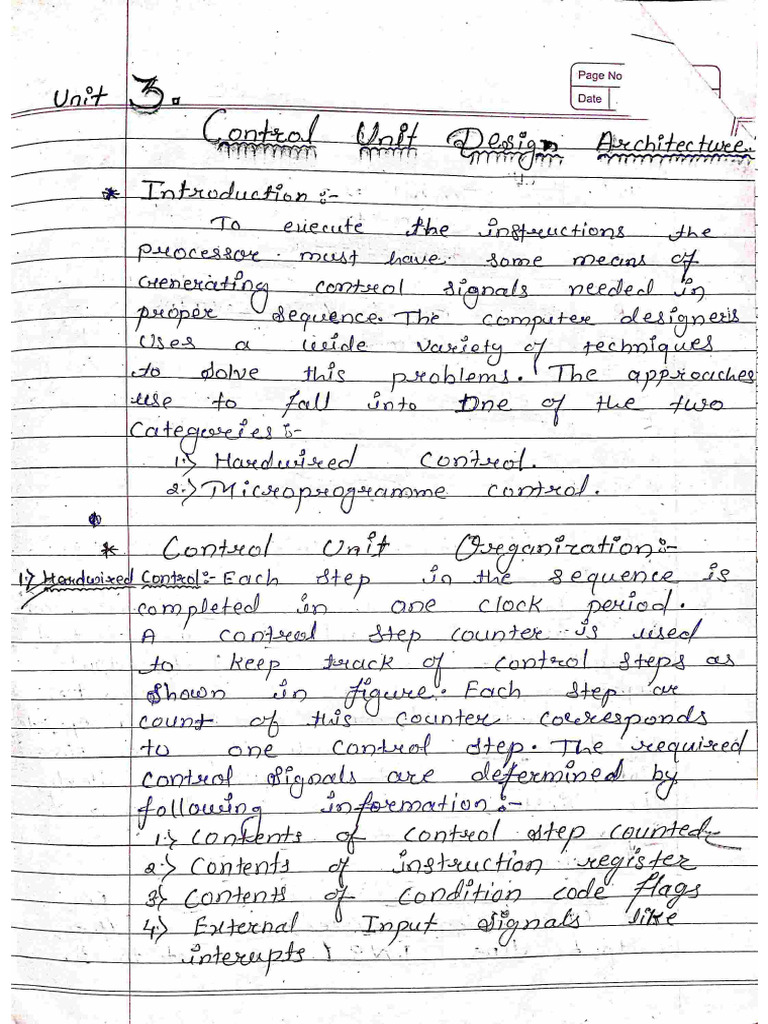 Page No
Date
Unit 3.
Control Unit Design Architecture.
* Introduction :-
To execute the instructions the
processor must have some means of
Generating control signals needed in
proper sequence. The computer designers
uses a wide variety of techniques
to solve this problems. The approaches
use to fall into one of the two
Categories :-
1.) Hardwired Control.
2.) Microprogramme control.
* Control Unit Organization :-
1.) Hardwired Control:- Each step in the sequence is
completed in one clock period.
A control step counter is used
to keep track of control steps as
shown in figure. Each step or
count of this counter corresponds
to one control step. The required
control signals are determined by
following information :-
1.) Contents of control step counted
2.) Contents of instruction register
3) Contents of condition code flags
4.) External Input signals like
interupts